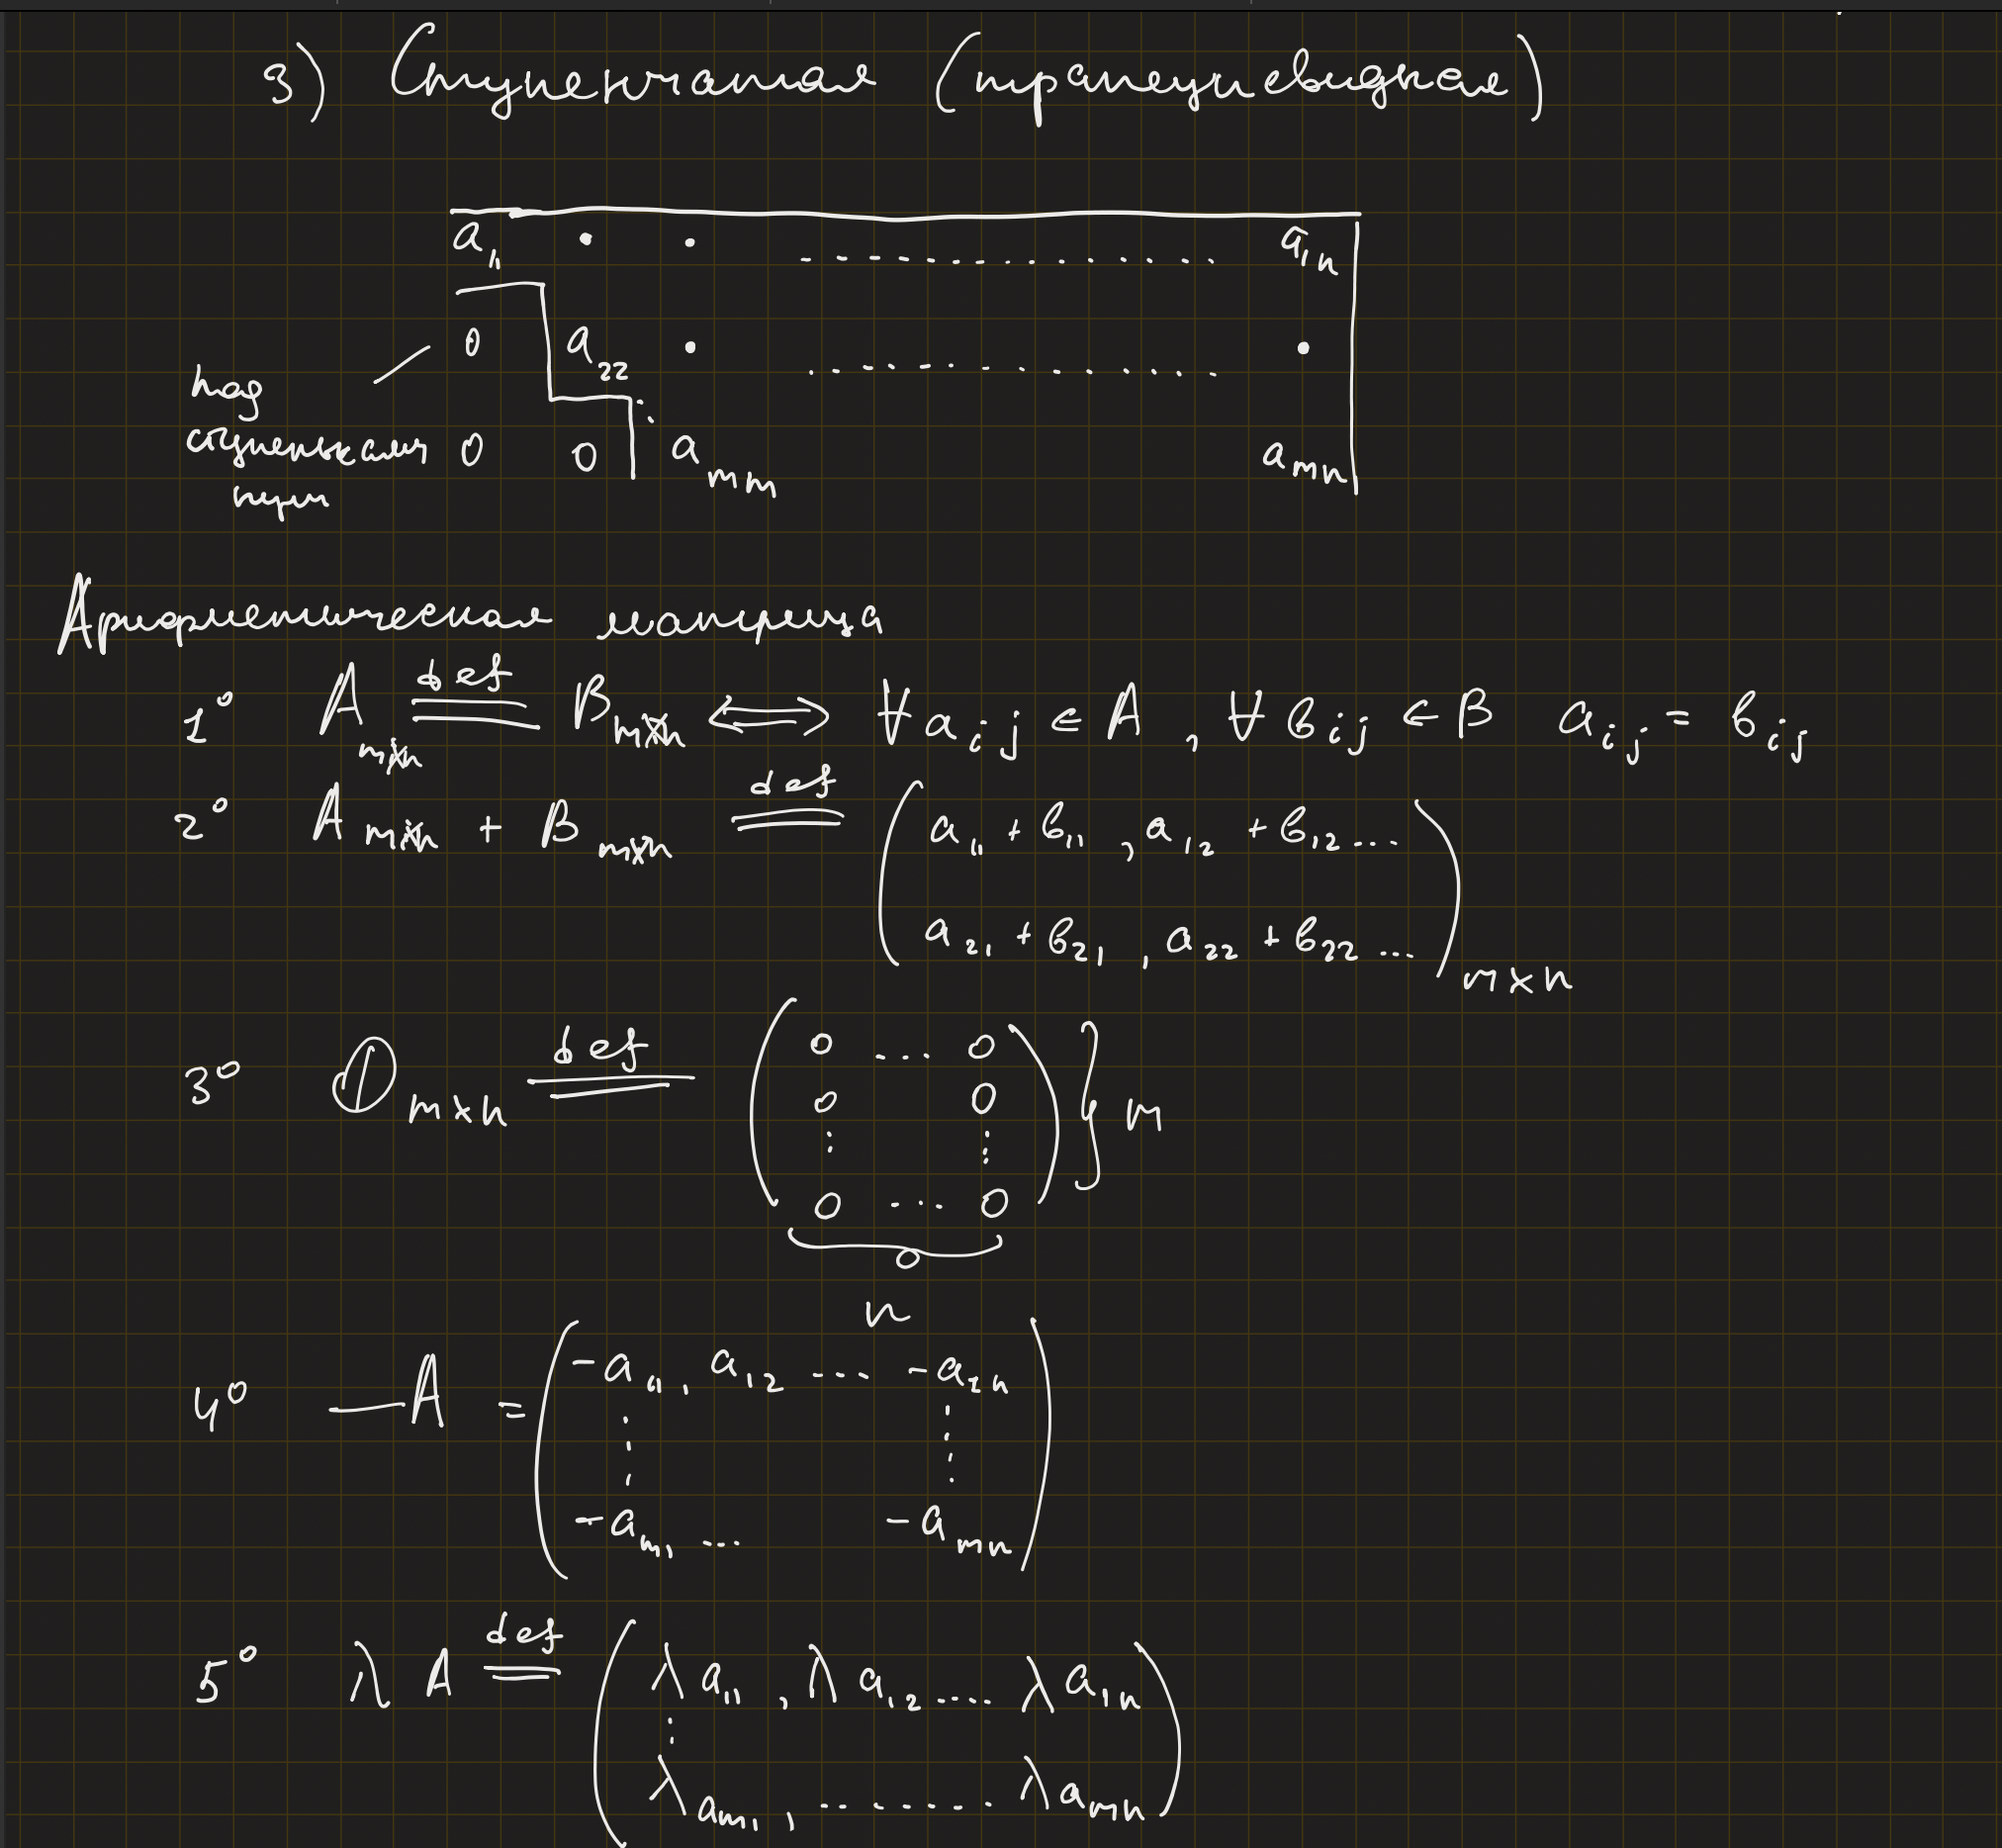 3) Ступенчатая (трапециевидная)
a₁₁ • • ............... a₁ₙ
0 a₂₂ • ............... •
под
ступеньками 0 0 aₘₘ aₘₙ
нули
Арифметическая матрица
1° A_{m×n} =def= B_{m×n} ⟺ ∀ a_{ij} ∈ A, ∀ b_{ij} ∈ B a_{ij} = b_{ij}
2° A_{m×n} + B_{m×n} =def= ( a₁₁ + b₁₁, a₁₂ + b₁₂ ...
a₂₁ + b₂₁, a₂₂ + b₂₂ ... )_{m×n}
3° 𝕆_{m×n} =def= ( 0 ... 0
0 0
⋮ ⋮
0 ... 0 ) } m
n
4° −A = ( −a₁₁, a₁₂ .... −a₁ₙ
⋮ ⋮
−a_{m1} ... −a_{mn} )
5° λA =def= ( λa₁₁, λa₁₂ .... λa₁ₙ
⋮
λa_{m1}, ........ λa_{mn} )